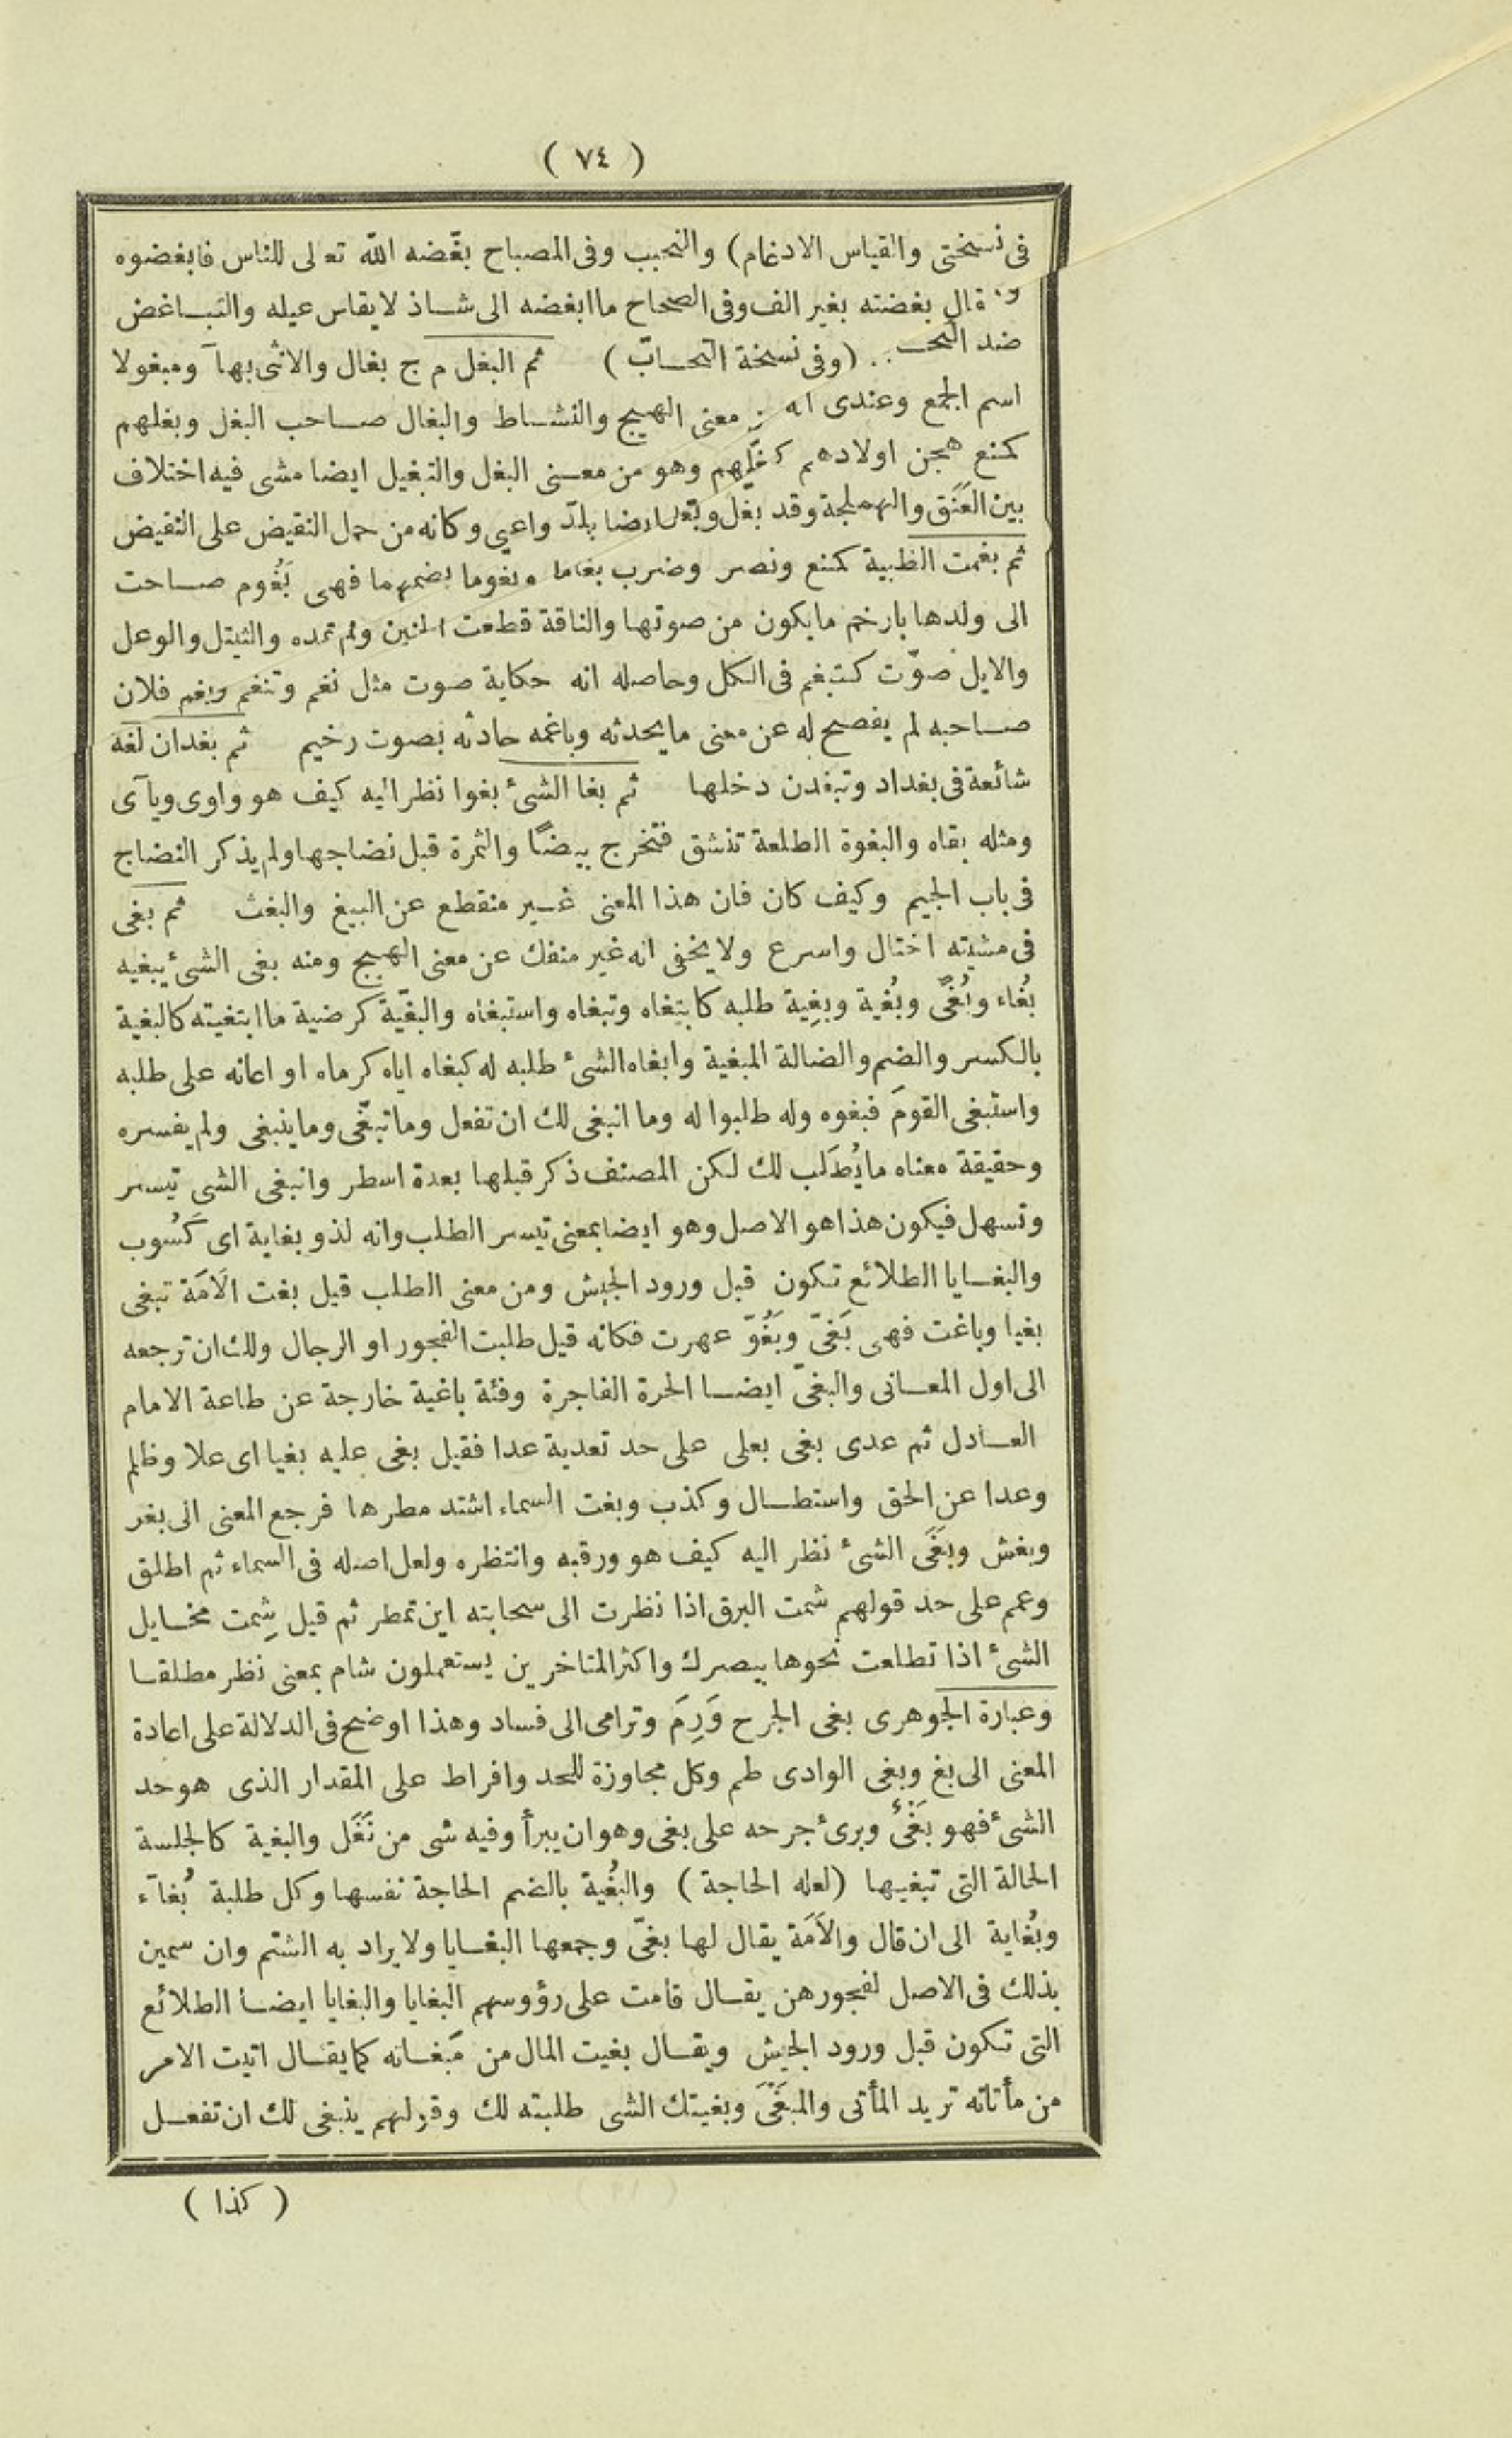 ( ٧٤ )
فى نسختى والقياس الادغام) والتحبيب وفى المصباح بغّضه الله تعالى للناس فابغضوه
قال بغضته بغير الف وفى الصحاح ما ابغضه الى شاذ لا يقاس عيله والتباغض
ضد (وفى نسخة التحابّ) ثم البغل م ج بغال والانثى بهآ ومبغولا
اسم الجمع وعندى انه معنى الهيج والنشاط والبغال صاحب البغل وبغلهم
كمنع هجن اولادهم كبغّلهم وهو من معنى البغل والتبغيل ايضا مشى فيه اختلاف
بين العَنَق والهملجة وقد بغل وبغّل ايضا بلّد واعيى وكانه من حمل النقيض على النقيض
ثم بغمت الظبية كمنع ونصر وضرب بغاما وبغوما بضمهما فهى بَغُوم صاحت
الى ولدها بارخم ما يكون من صوتها والناقة قطعت الحنين ولم تمده والثيتل والوعل
والايل صوّت كتبغم فى الكل وحاصله انه حكاية صوت مثل نغم وتنغم وبغم فلان
صاحبه لم يفصح له عن معنى ما يحدثه وباغمه حادثه بصوت رخيم ثم بغدان لغة
شائعة فى بغداد وتبغدن دخلها ثم بغا الشىء بغوا نظر اليه كيف هو واوى ويآى
ومثله بقاه والبغوة الطلعة تنشق فتخرج بيضًا والثمرة قبل نضاجها ولم يذكر النضاج
فى باب الجيم وكيف كان فان هذا المعنى غير منقطع عن البيغ والبغث ثم بغى
فى مشيته اختال واسرع ولا يخفى انه غير منفك عن معنى الهيج ومنه بغى الشىء يبغيه
بُغاء وبُغًى وبُغية وبِغِية طلبه كابتغاه وتبغاه واستبغاه والبغّية كرضية ما ابتغيته كالبغية
بالكسر والضم والضالة المبغية وابغاه الشىء طلبه له كبغاه اياه كرماه او اعانه على طلبه
واستبغى القومَ فبغوه وله طلبوا له وما انبغى لك ان تفعل وما تبغّى وما ينبغى ولم يفسره
وحقيقة معناه ما يُطَلب لك لكن المصنف ذكر قبلها بعدة اسطر وانبغى الشى تيسر
وتسهل فيكون هذا هو الاصل وهو ايضا بمعنى تيسر الطلب وانه لذو بغاية اى كَسُوب
والبغايا الطلائع تكون قبل ورود الجيش ومن معنى الطلب قيل بغت الاَمَة تبغى
بغيا وباغت فهى بَغىّ وبَغُوّ عهرت فكانه قيل طلبت الفجور او الرجال ولك ان ترجعه
الى اول المعانى والبغىّ ايضا الحرة الفاجرة وفئة باغية خارجة عن طاعة الامام
العادل ثم عدى بغى بعلى على حد تعدية عدا فقيل بغى عليه بغيا اى علا وظلم
وعدا عن الحق واستطال وكذب وبغت السماء اشتد مطرها فرجع المعنى الى بغر
وبغش وبَغَى الشىء نظر اليه كيف هو ورقبه وانتظره ولعل اصله فى السماء ثم اطلق
وعمم على حد قولهم شمت البرق اذا نظرت الى سحابته اين تمطر ثم قيل شِمت مخايل
الشىء اذا تطلعت نحوها ببصرك واكثر المتاخرين يستعملون شام بمعنى نظر مطلقا
وعبارة الجوهرى بغى الجرح وَرِمَ وترامى الى فساد وهذا اوضح فى الدلالة على اعادة
المعنى الى بغ وبغى الوادى طم وكل مجاوزة للحد وافراط على المقدار الذى هو حد
الشىء فهو بَغْىٌ وبرئ جرحه على بغى وهو ان يبرأ وفيه شى من نَغَل والبغية كالجلسة
الحالة التى تبغيها (لعله الحاجة) والبُغْية بالضم الحاجة نفسها وكل طلبة بُغآء
وبُغاية الى ان قال والاَمَة يقال لها بغىّ وجمعها البغايا ولا يراد به الشتم وان سمين
بذلك فى الاصل لفجورهن يقال قامت على رؤوسهم البغايا والبغايا ايضا الطلائع
التى تكون قبل ورود الجيش ويقال بغيت المال من مَبغاته كما يقال اتيت الامر
من مأتاته تريد المأتى والمبغَى وبغيتك الشى طلبته لك وقولهم ينبغى لك ان تفعل
( كذا )